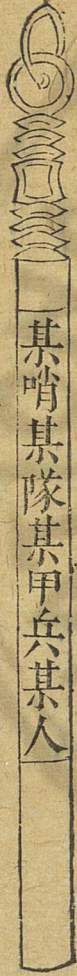 某哨某隊某甲兵某人